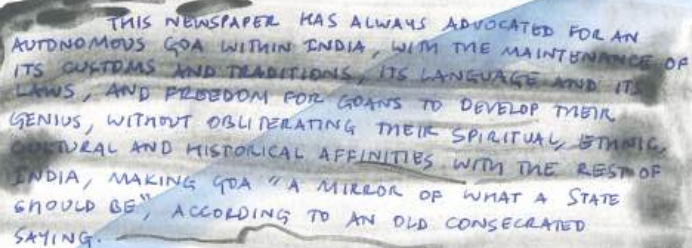 THIS NEWSPAPER HAS ALWAYS ADVOCATED FOR AN
AUTONOMOUS GOA WITHIN INDIA, WITH THE MAINTENANCE OF
ITS CUSTOMS AND TRADITIONS, ITS LANGUAGE AND ITS
LAWS, AND FREEDOM FOR GOANS TO DEVELOP THEIR
GENIUS, WITHOUT OBLITERATING THEIR SPIRITUAL, ETHNIC,
CULTURAL AND HISTORICAL AFFINITIES WITH THE REST OF
INDIA, MAKING GOA "A MIRROR OF WHAT A STATE
SHOULD BE", ACCORDING TO AN OLD CONSECRATED
SAYING.